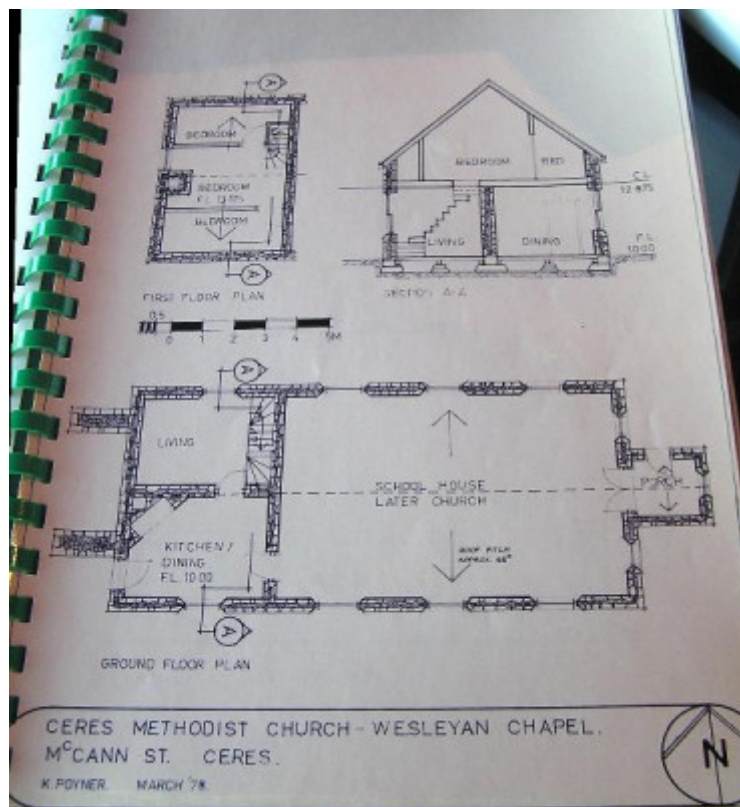 A
BEDROOM
BEDROOM
BEDROOM
A
FIRST FLOOR PLAN
BEDROOM BED
C.L.
12.875
LIVING DINING
F.L.
10.00
SECTION A-A
0.5
0 1 2 3 4 5M
A
LIVING
SCHOOL HOUSE
LATER CHURCH
PORCH
KITCHEN/
DINING
F.L. 10.00
ROOF PITCH
APPROX.
A
GROUND FLOOR PLAN
CERES METHODIST CHURCH - WESLEYAN CHAPEL.
McCANN ST. CERES.
K. POYNER. MARCH '78.
N